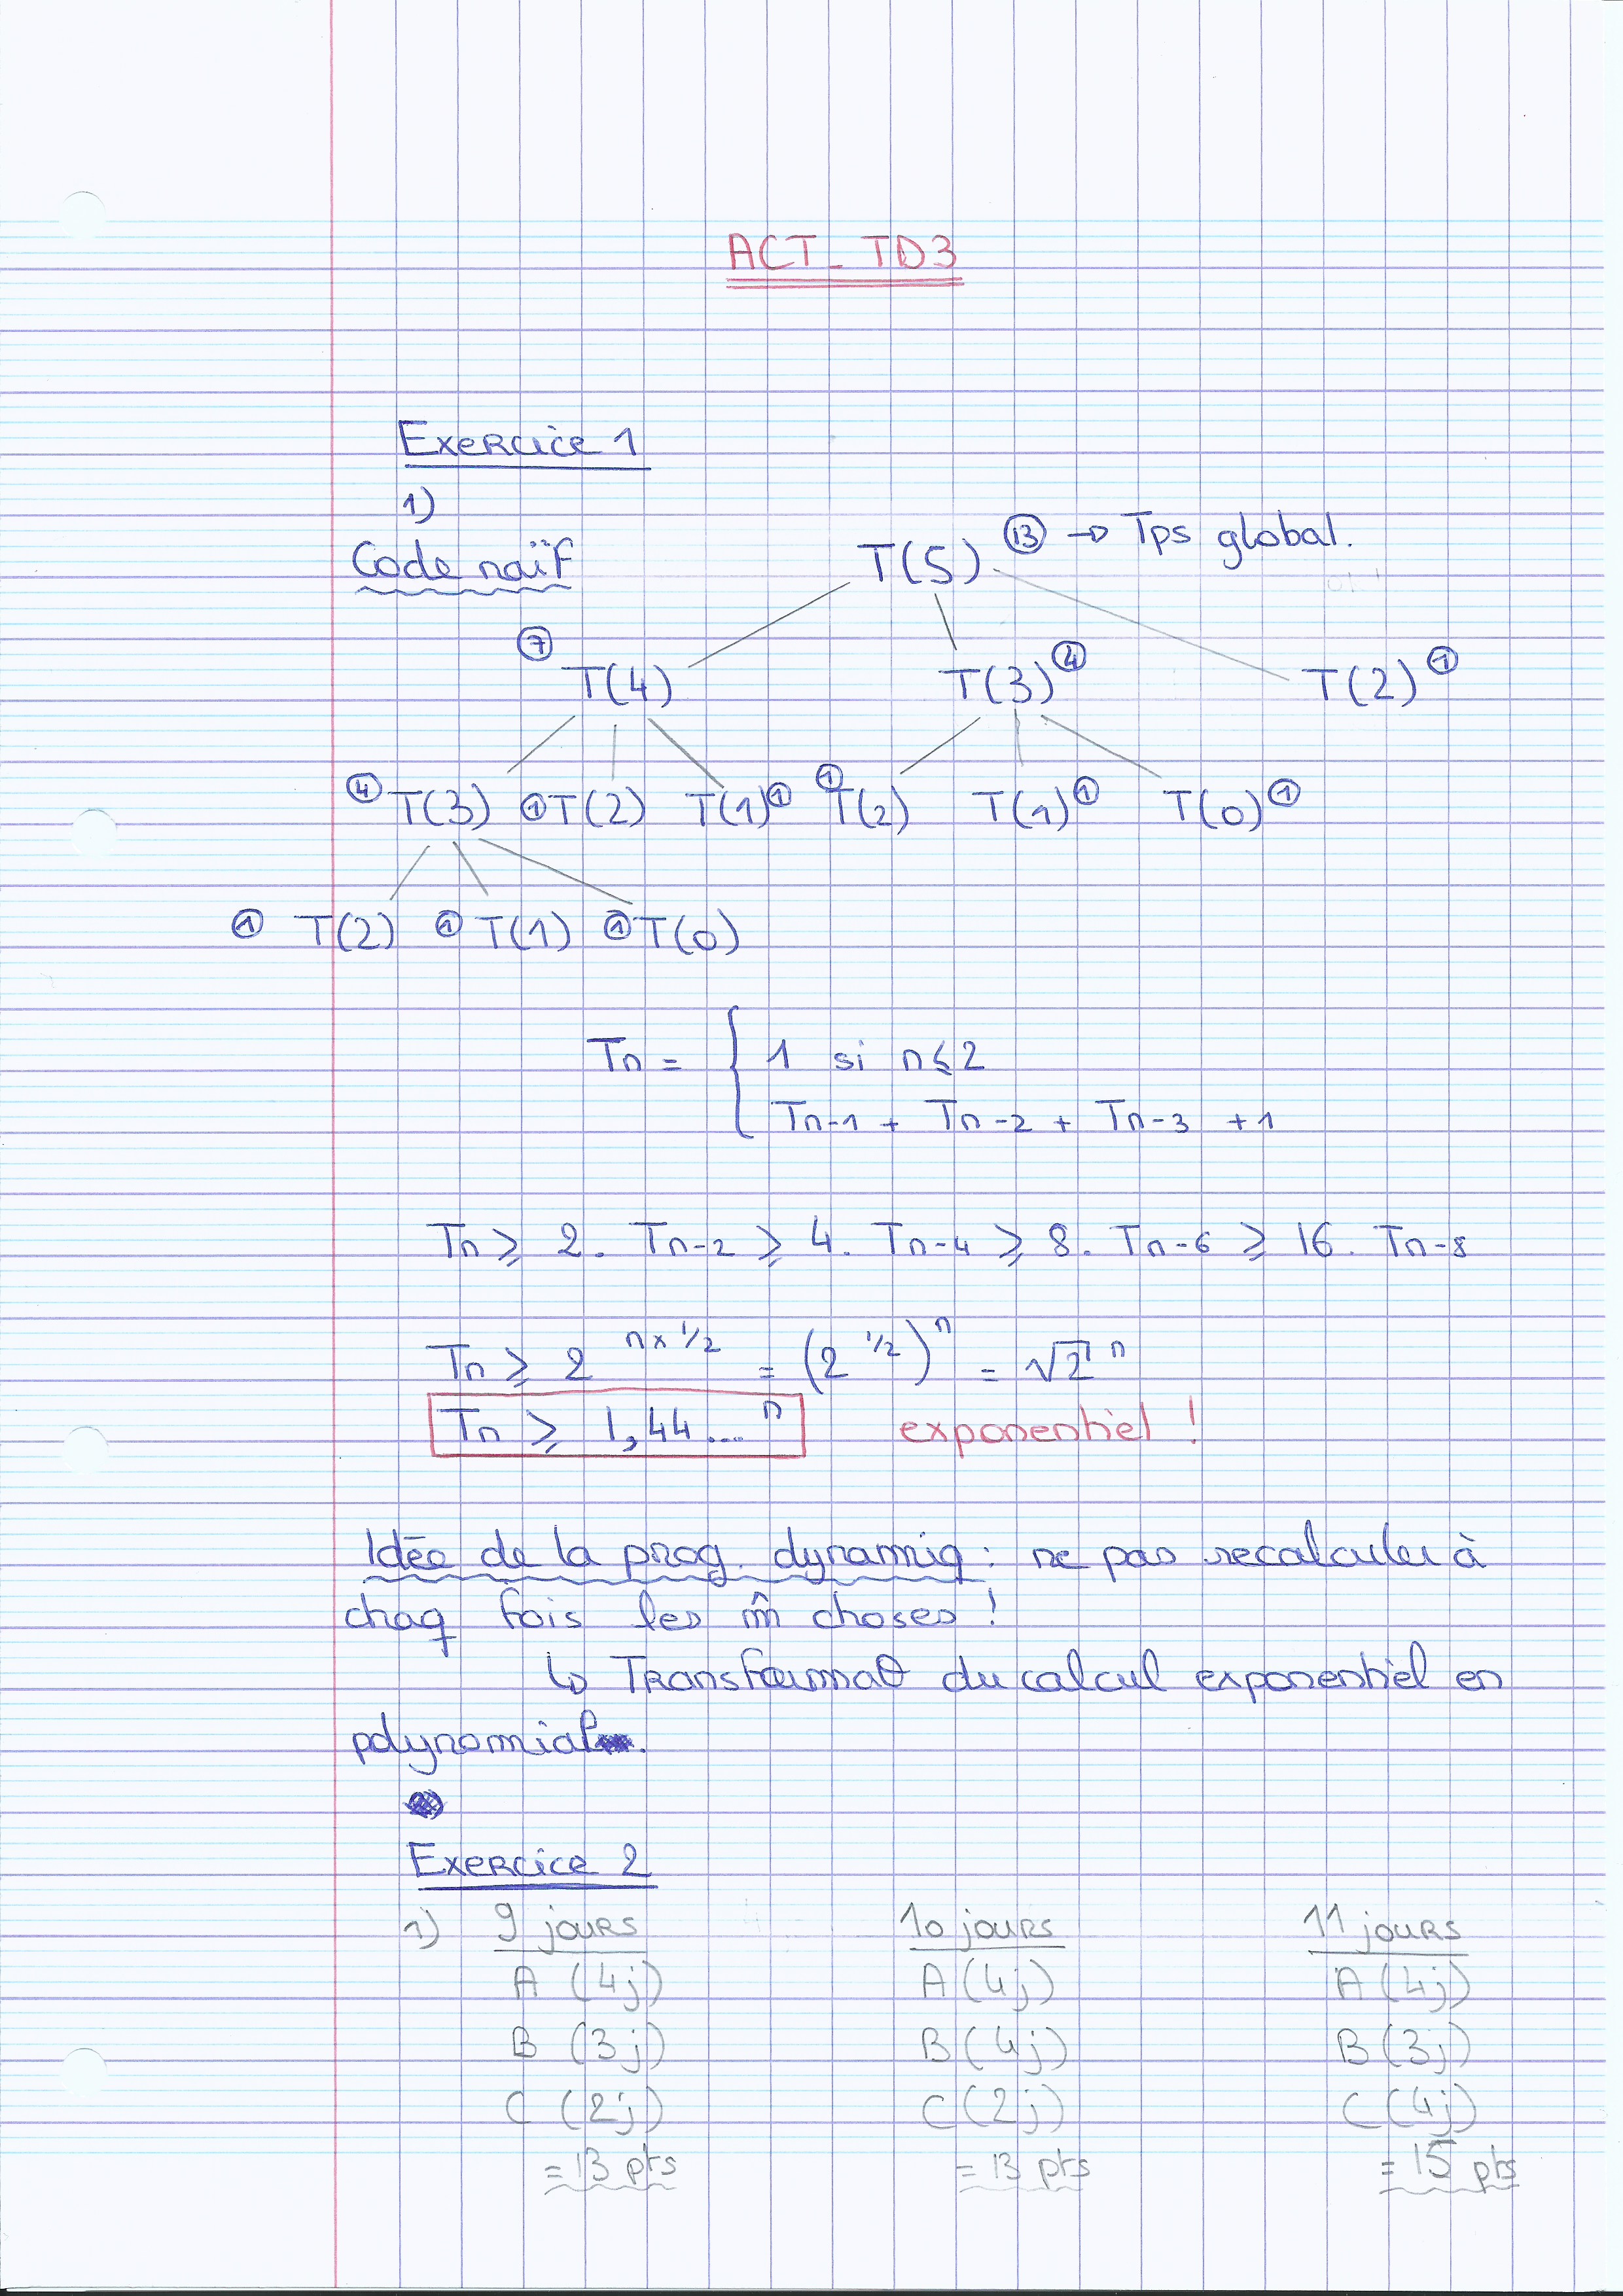 ACT_TD3
Exercice 1
1)
Code naïf
T(5) ⑬ → Tps global.
⑦ T(4) T(3) ④ T(2) ①
④ T(3) ① T(2) T(1) ① ① T(2) T(1) ① T(0) ①
① T(2) ① T(1) ① T(0)
Tn = { 1 si n ≤ 2
Tn-1 + Tn-2 + Tn-3 + 1
Tn ≥ 2. Tn-2 ≥ 4. Tn-4 ≥ 8. Tn-6 ≥ 16. Tn-8
Tn ≥ 2^(n×1/2) = (2^1/2)^n = √2^n
Tn ≥ 1,44...^n exponentiel !
Idée de la prog. dynamiq : ne pas recalculer à
chaq fois les m̂ choses !
↳ Transformat° du calcul exponentiel en
polynomial.
Exercice 2
1) 9 jours 10 jours 11 jours
A (4j) A (4j) A (4j)
B (3j) B (4j) B (3j)
C (2j) C (2j) C (4j)
= 13 pts = 13 pts = 15 pts